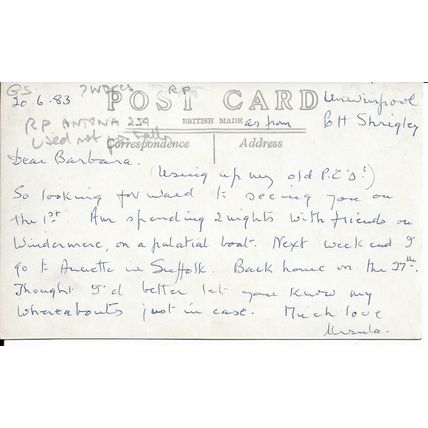 GS. RP
20.6.83
POST CARD
RP ANTONA 259
Used not postally
BRITISH MADE
as from
Correspondence
Address
Dear Barbara.
(Using up my old P.C's!)
So looking forward to seeing you on
the 1st Am spending 2 nights with friends on
Windermere, on a palatial boat. Next weekend I
go to Annette in Suffolk. Back home on the 27th.
Thought I'd better let you know my
whereabouts just in case. Much love
Ursula.